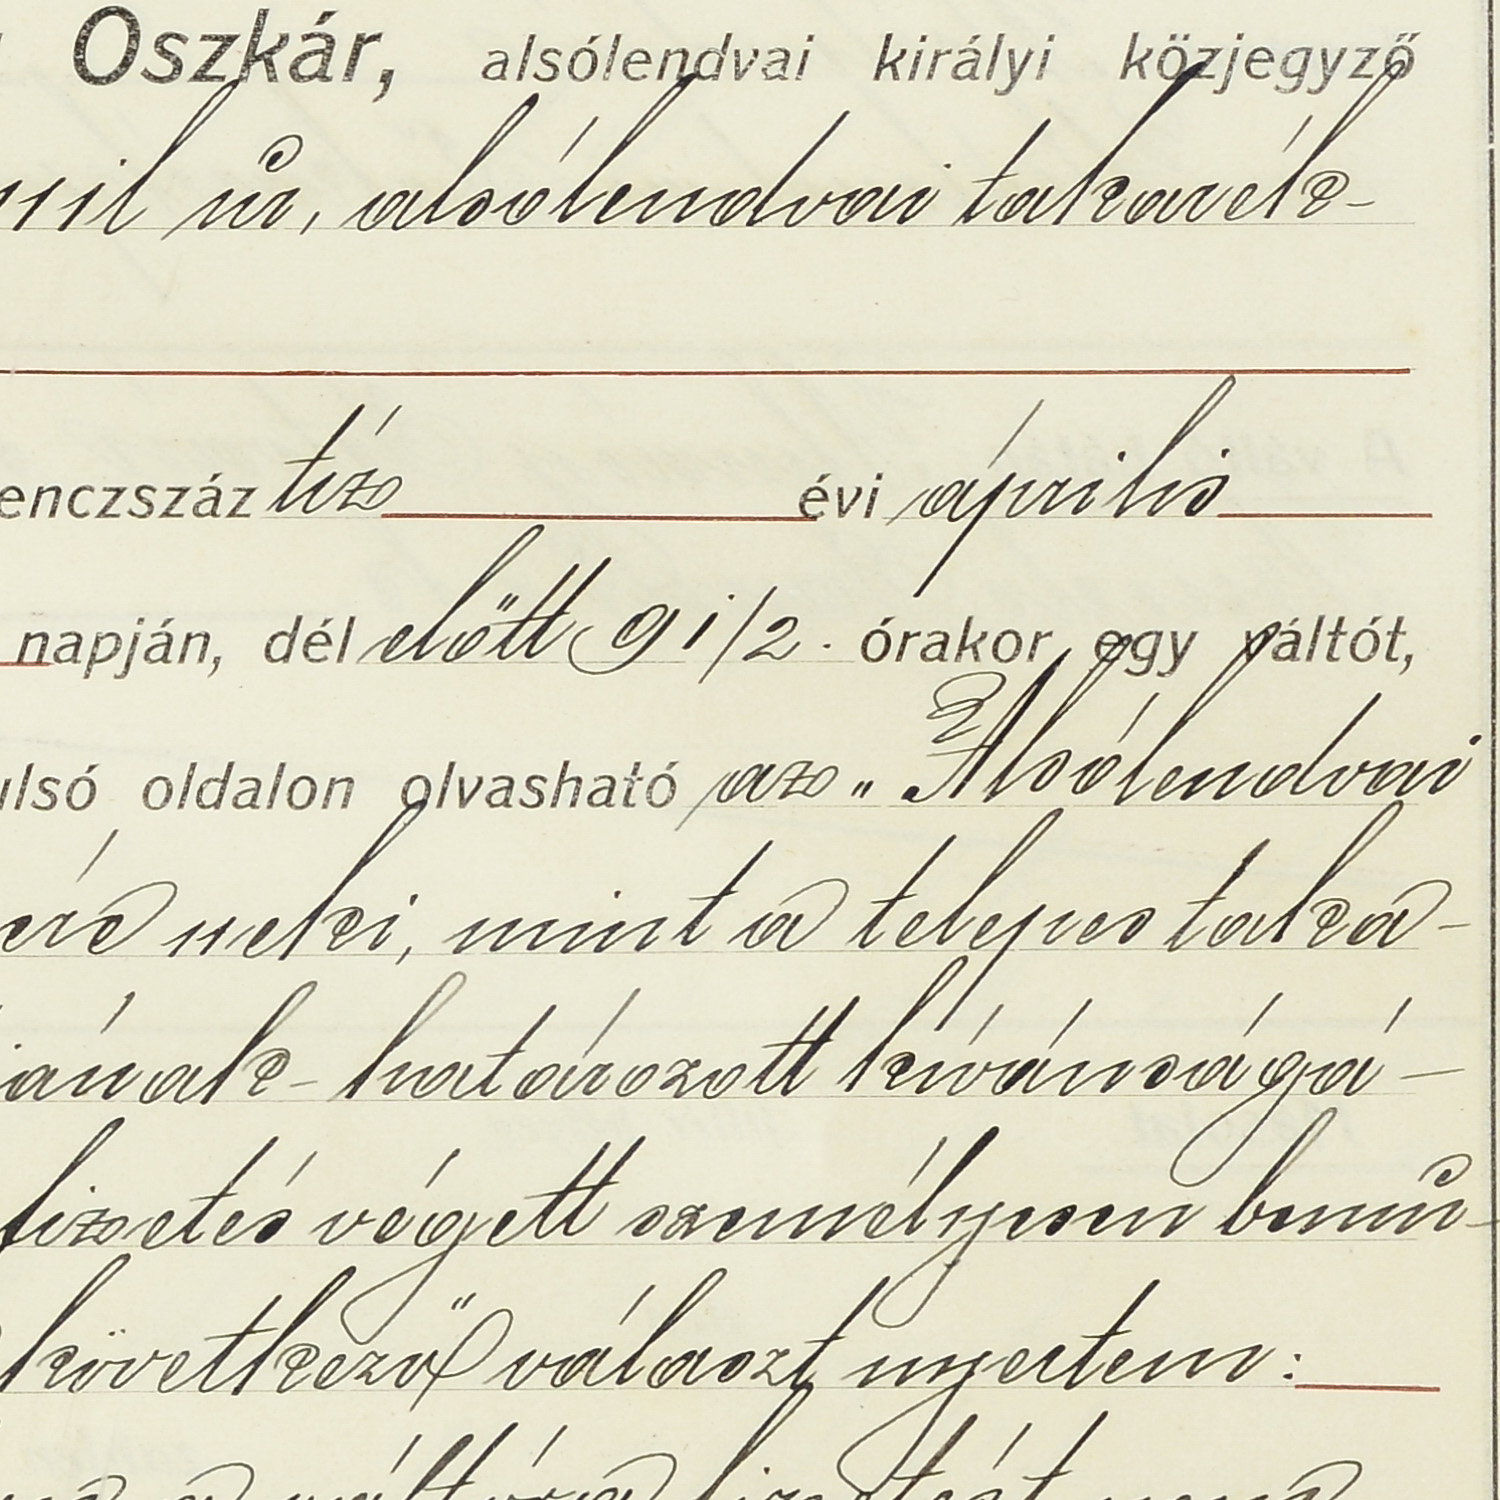 Oszkár, alsólendvai királyi közjegyző
úr, alsólendvai takarék-
enczszáz tiz évi április
napján, dél előtt 9 1/2. órakor egy váltót,
ulsó oldalon olvasható az „Alsólendvai
neki, mint a telepes taka-
ának - határozott kívánságá-
fizetés végett személyesen bemu-
következő választ nyertem:
a váltóra fizetést nem